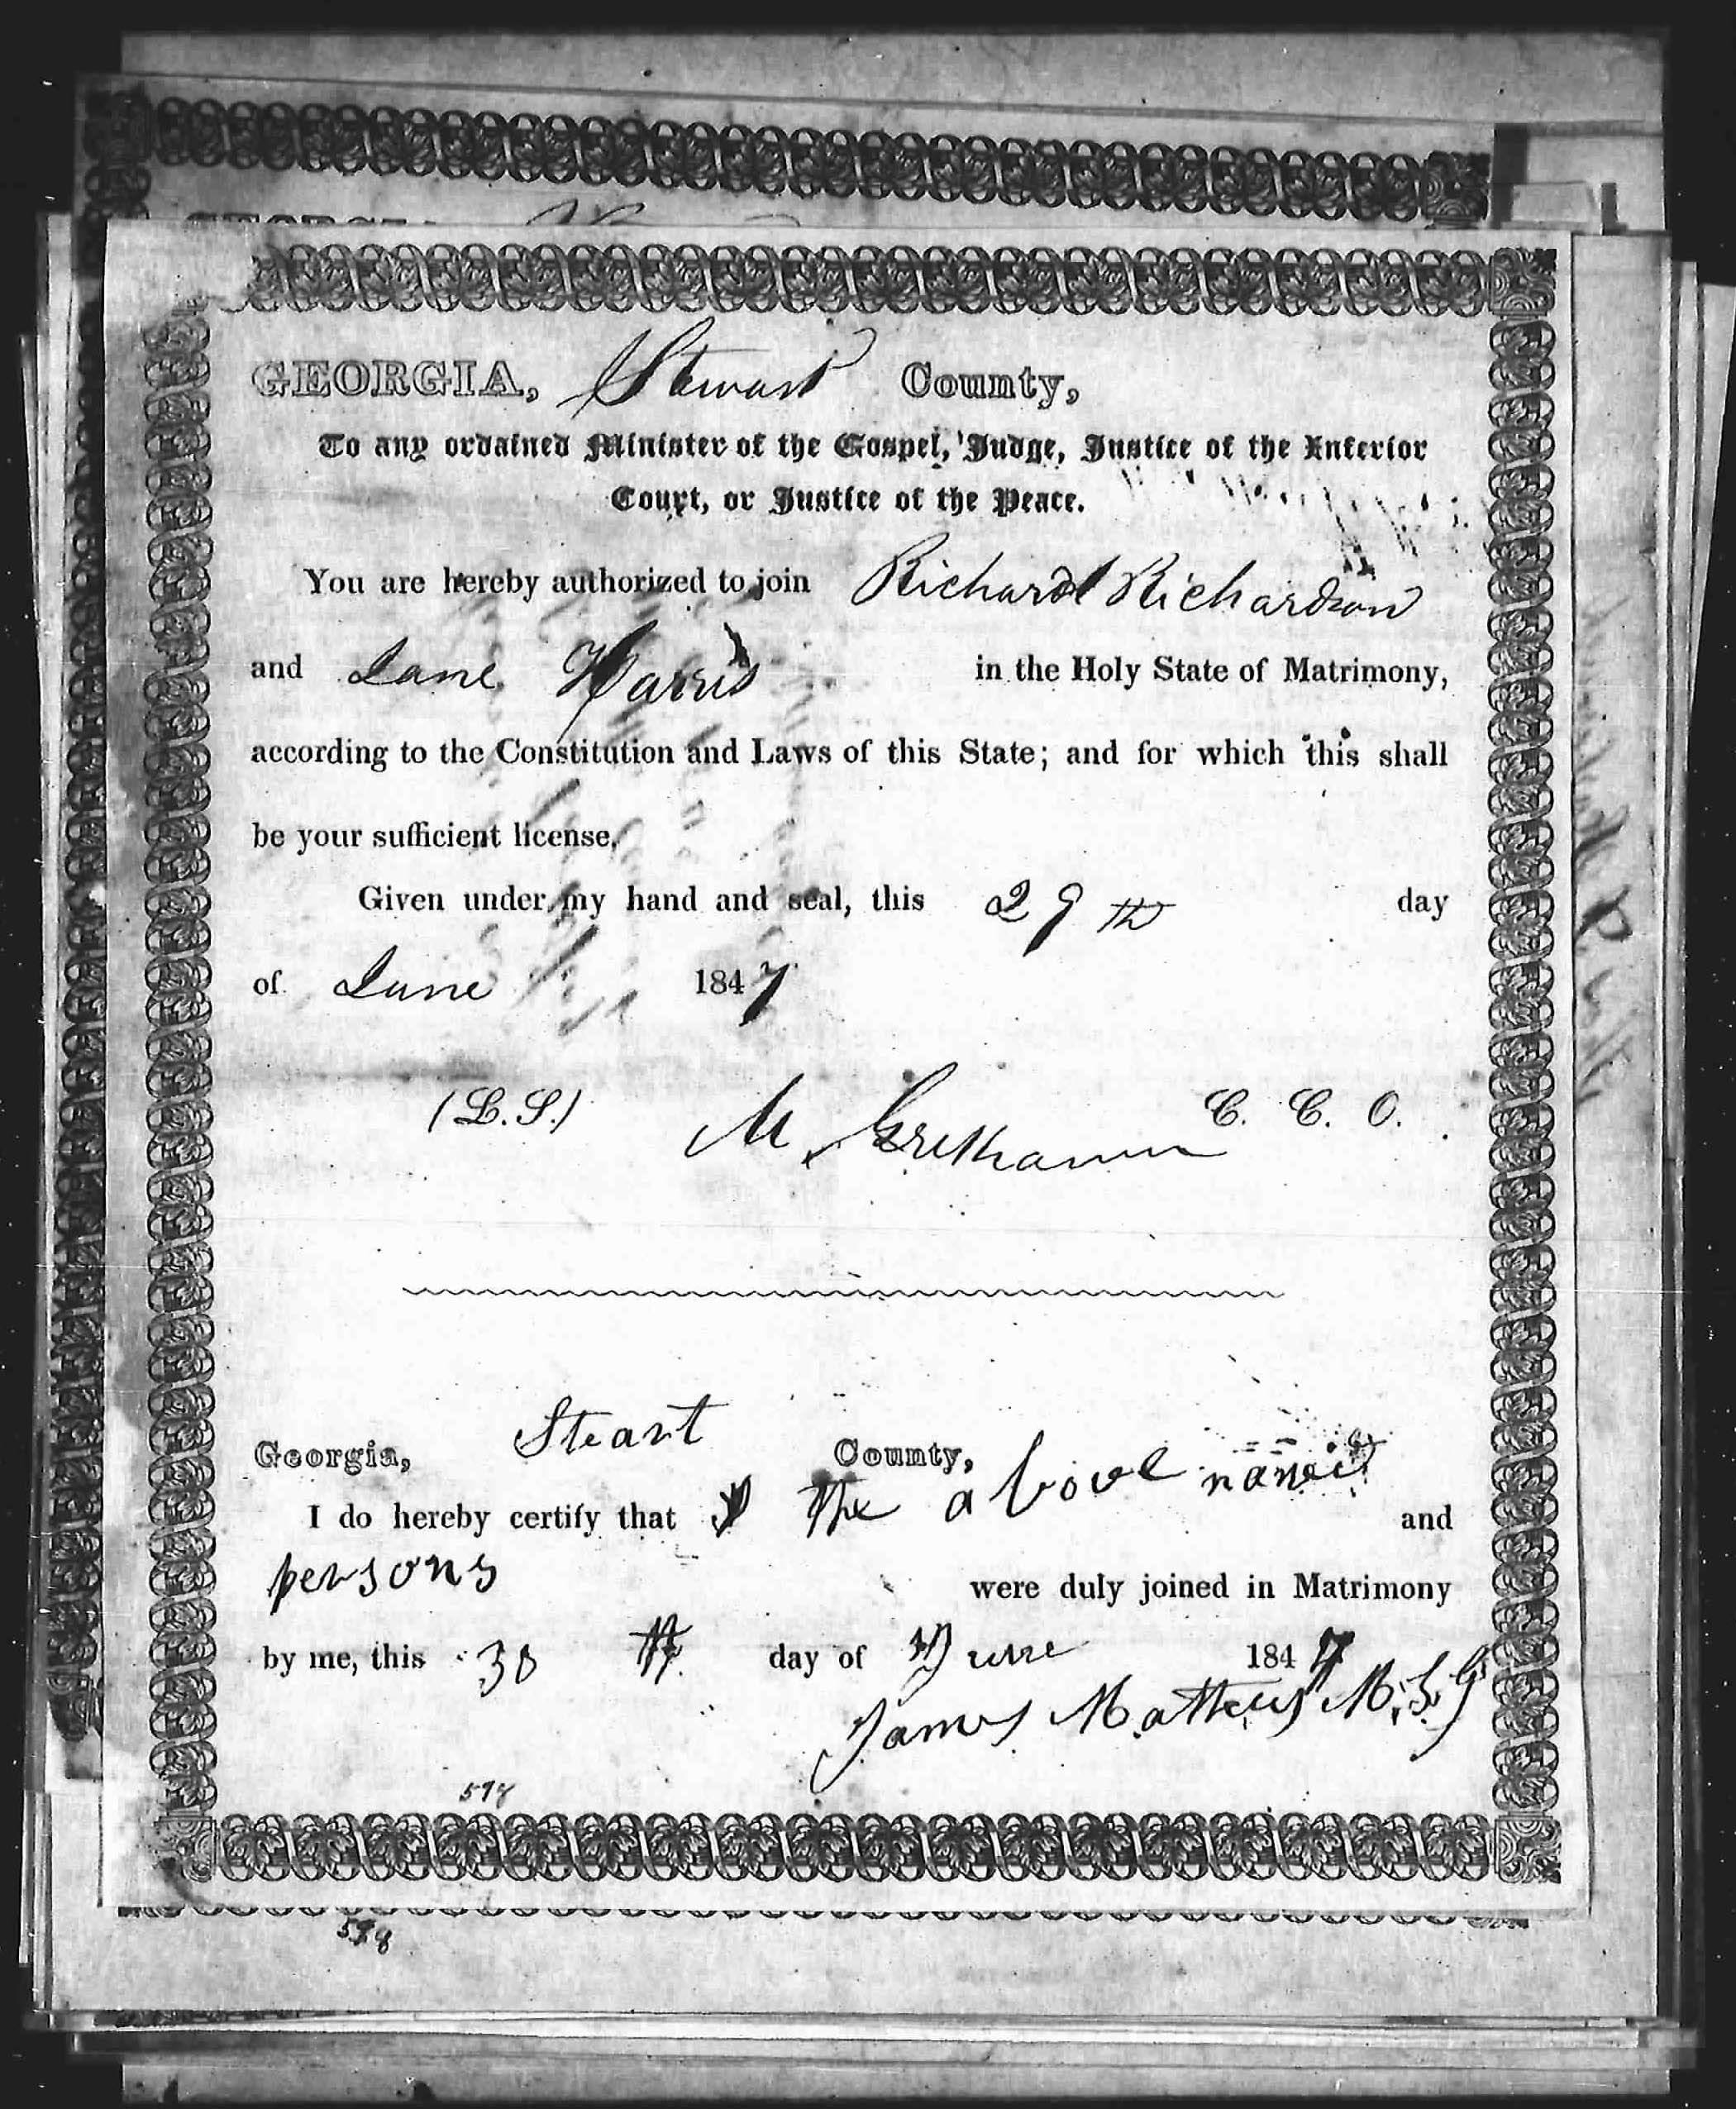 GEORGIA, Stewart County,
To any ordained Minister of the Gospel, Judge, Justice of the Inferior
Court, or Justice of the Peace.
You are hereby authorized to join Richard Richardson
and Jane Harris in the Holy State of Matrimony,
according to the Constitution and Laws of this State; and for which this shall
be your sufficient license.
Given under my hand and seal, this 29th day
of June 1847
(L.S.) M. Gresham C. C. O.
Georgia, Steart County,
I do hereby certify that the above named and
persons were duly joined in Matrimony
by me, this 30 th day of June 1847
James Matteus M.S.G
578
578